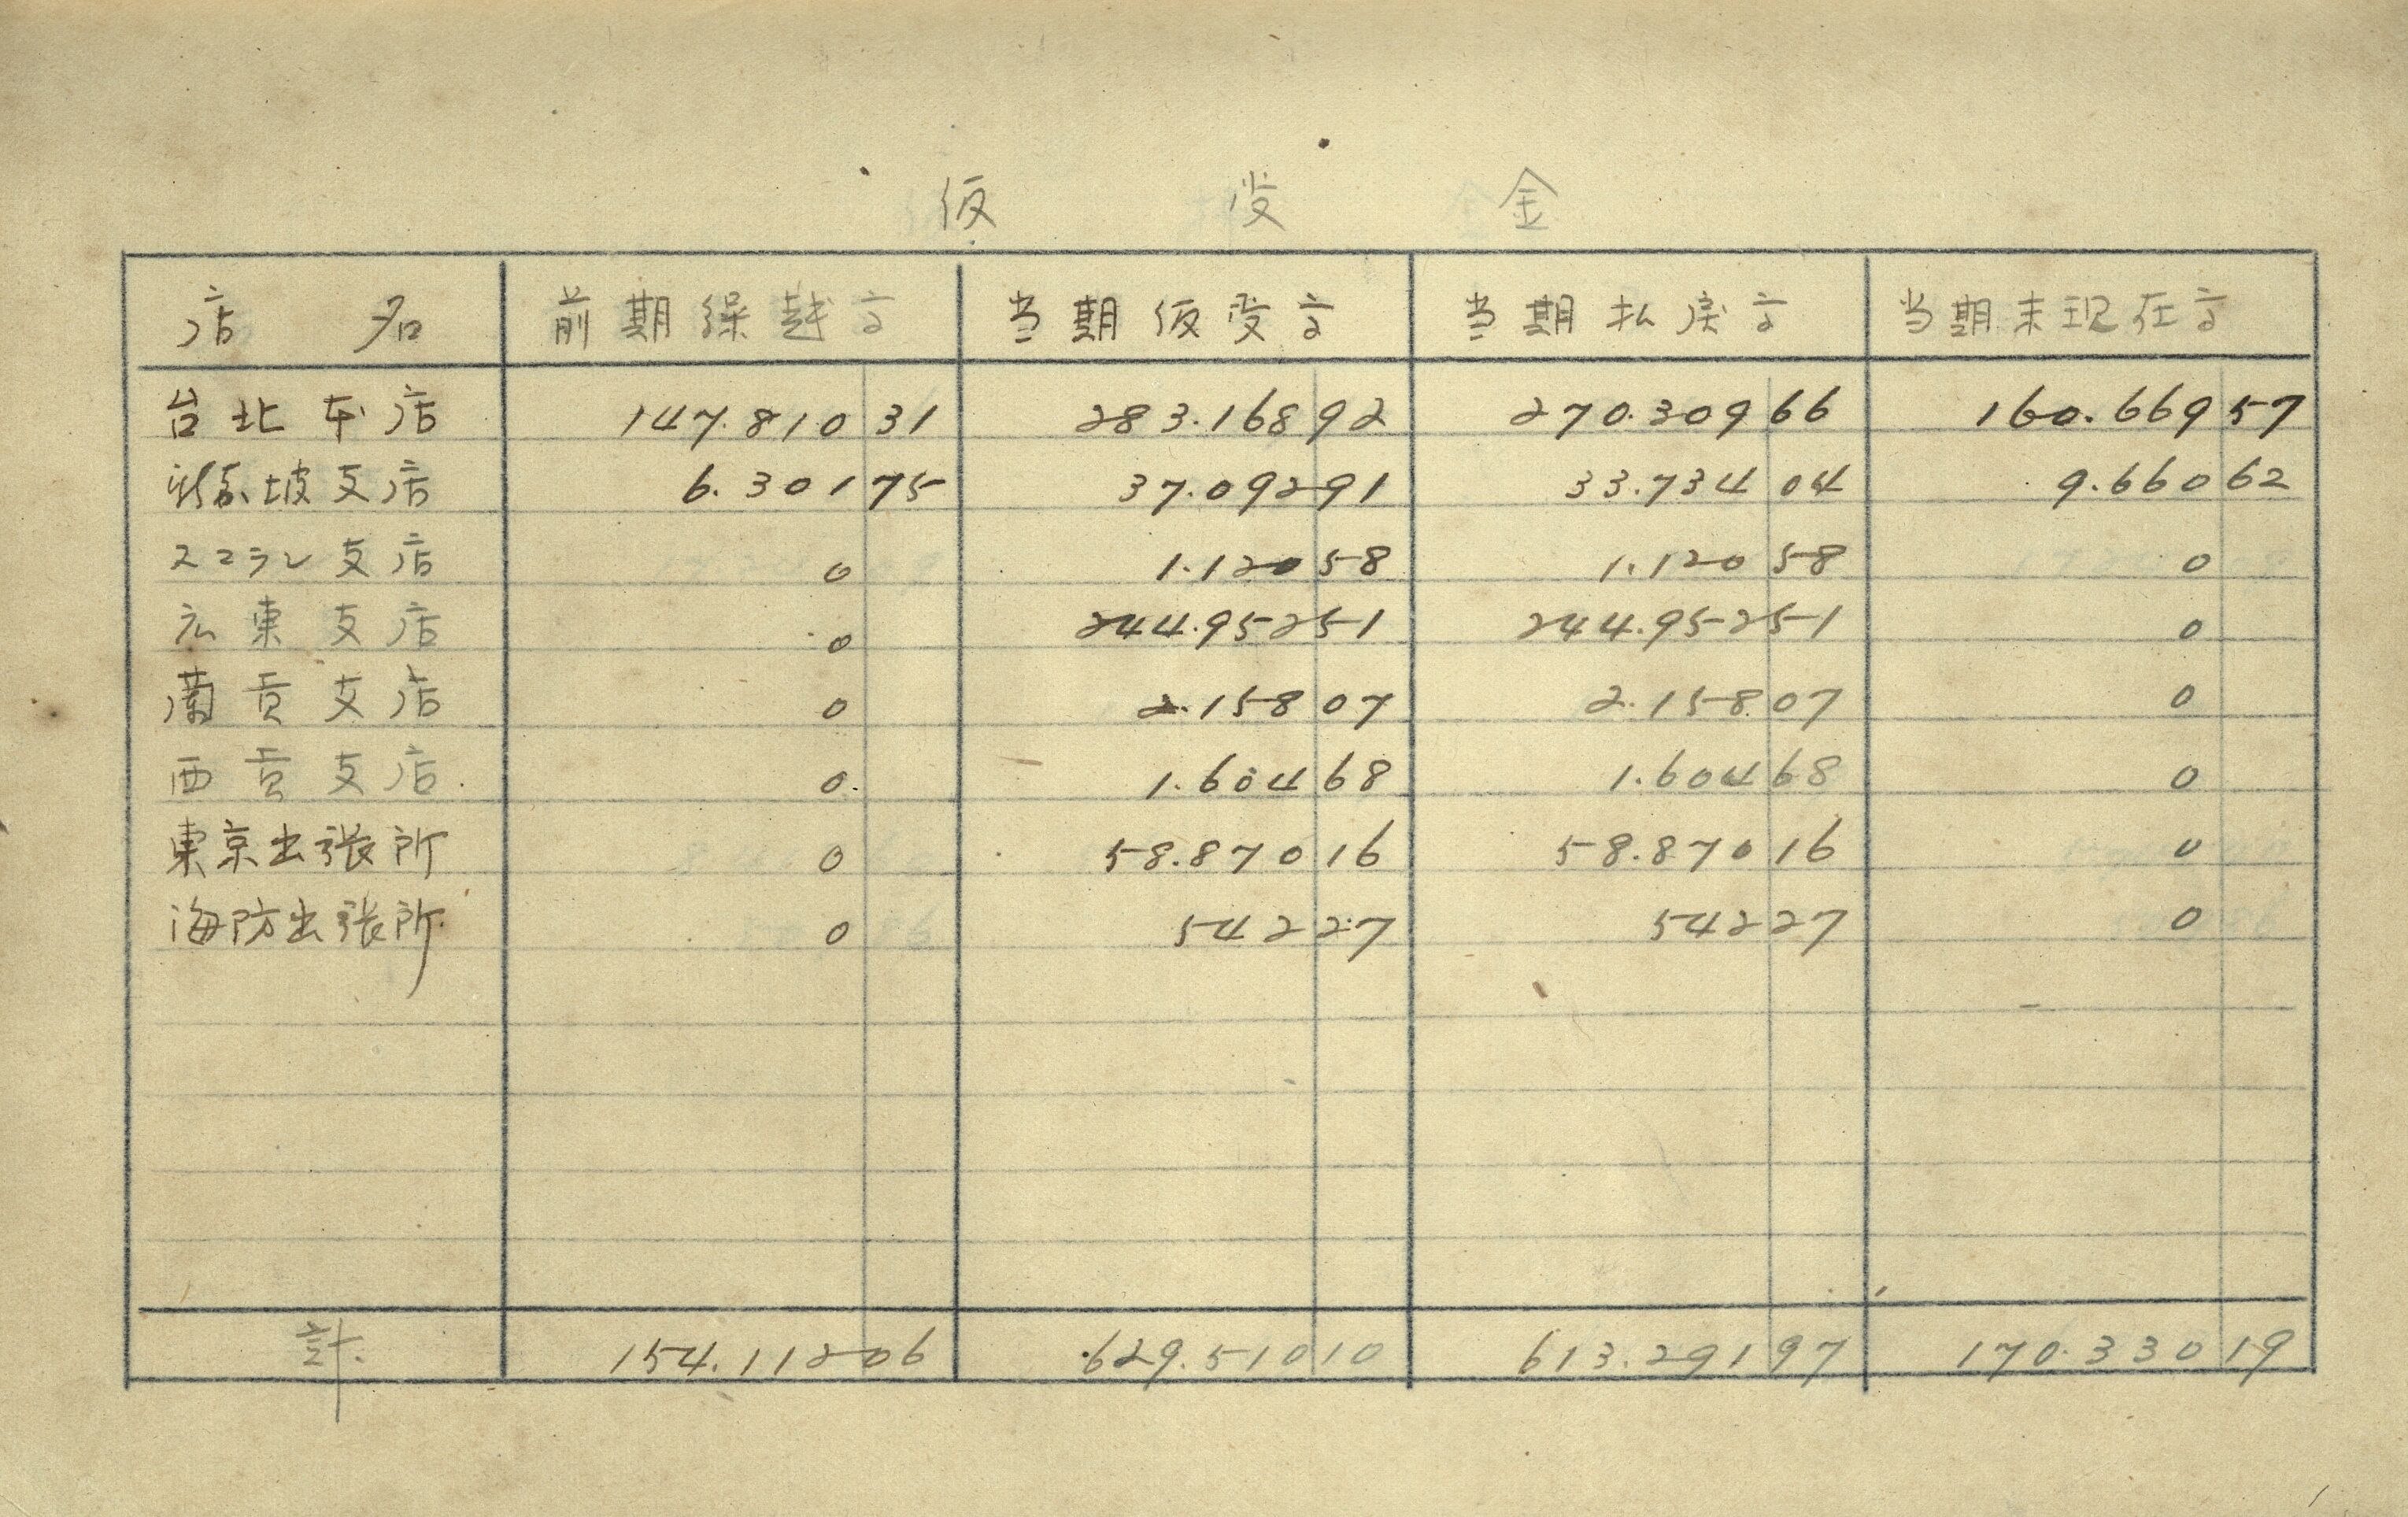 仮受金
店名 前期繰越高 当期仮受高 当期払戻高 当期末現在高
台北本店 147.810 31 283.168 92 270.309 66 160.669 57
新嘉坡支店 6.301 75 37.092 91 33.734 04 9.660 62
スマラン支店 0 1.120 58 1.120 58 0
広東支店 0 244.952 51 244.952 51 0
蘭貢支店 0 2.158 07 2.158 07 0
西貢支店 0 1.604 68 1.604 68 0
東京出張所 0 58.870 16 58.870 16 0
海防出張所 0 542 27 542 27 0
計 154.112 06 629.510 10 613.291 97 170.330 19